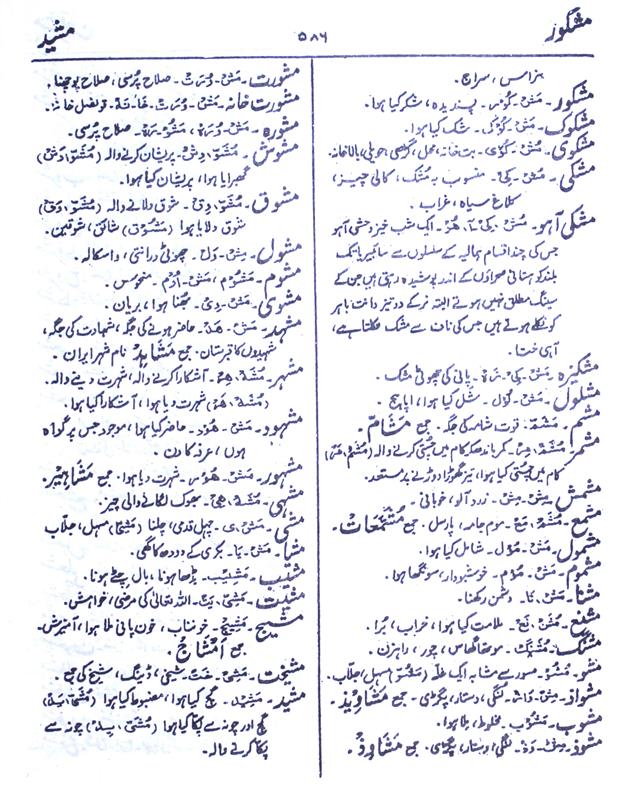 مشکور
۵۸۶
مشید
ہزامس، سراج۔
مشکور۔ مَشْ۔ کُوْر۔ پسندیدہ، شکر کیا ہوا۔
مشکوک۔ مَشْ۔ کُوْک۔ شک کیا ہوا۔
مشکوی۔ مُشْ۔ کُوْی۔ بت خانہ، محل، کوٹھی، حویلی، بالاخانہ۔
مشکی۔ مُشْ۔ کِیْ۔ منسوب بہ مُشک، کالی چیز،
کلاغ سیاہ، غراب۔
مشکی آہو۔ مُشْ۔ کِیْ۔ آ۔ ہُوْ۔ ایک شب خیز وحشی آہو
جس کی چند اقسام ہمالیہ کے سلسلوں سے سائبیریا تک
بلند کوہستانی صحراؤں کے اندر پوشیدہ رہتی ہیں جن کے
سینگ مطلق نہیں ہوتے البتہ نر کے دو تیز دانت باہر
کو نکلے ہوتے ہیں جس کی ناف سے مشک نکلتا ہے،
آہی ختا۔
مشکیزہ۔ مَشْ۔ کِیْ۔ زَہ۔ پانی کی چھوٹی مشک۔
مشلول۔ مَشْ۔ لُوْل۔ شل کیا ہوا، اپاہج۔
مشم۔ مَشَمّ۔ قوت شامہ کی جگہ۔ جمع مَشَامّ۔
مشمر۔ مُشَمْ۔ مِرْ۔ کمر باندھ کر کام میں چستی کرنے والہ (مُشَمْ، مَرْ)
کام میں چستی کیا ہوا، تیز گھوڑا دوڑنے پر مستعد۔
مشمش۔ مِشْ۔ مِشْ۔ زرد آلو، خوبانی۔
مشمع۔ مُشَمْ، مَعْ۔ موم جامہ، پارسل۔ جمع مُشَمَّعَات۔
مشمول۔ مَشْ۔ مُوْل۔ شامل کیا ہوا۔
مشموم۔ مَشْ۔ مُوْم۔ خوشبودار، سونگھا ہوا۔
مشنا۔ مَشْ۔ نَا۔ دشمن رکھنا۔
مشنع۔ مُشَنْ، نَعْ۔ ملامت کیا ہوا، خراب، بُرا۔
مشنگ۔ مُشَنْگ۔ موٹھا گھاس، چور، راہزن۔
مشو۔ مُشُوْ۔ مسور سے مشابہ ایک غلّہ (مَشُوْ) مسہل، جلاب۔
مشواذ۔ مِشْ۔ وَاذ۔ لنگی، دستار، پگڑی۔ جمع مَشَاوِیْذ۔
مشوب۔ مَشُوْب۔ مخلوط، ملا ہوا۔
مشوذ۔ مِشْ۔ وَذْ۔ لنگی، دستار، پگڑی۔ جمع مَشَاوِذْ۔
مشورت۔ مَشْ۔ وَرَتْ۔ صلاح پرسی، صلاح پوچھنا۔
مشورت خانہ۔ مَشْ۔ وَرَتْ۔ خَا۔ نَہْ۔ قونصل خانہ۔
مشورہ۔ مَشْ، وَرَہْ، مَشُوْ، رَہْ۔ صلاح پرسی۔
مشوش۔ مُشَوْ، وِشْ۔ پریشان کرنے والہ (مُشَوْ، وَشْ)
گھبرایا ہوا، پریشان کیا ہوا۔
مشوق۔ مُشَوْ، وِقْ۔ شوق دلانے والہ (مُشَوْ، وَقْ)
شوق دلایا ہوا (مَشُوْق) شائق، شوقین۔
مشول۔ مِشْ، وَل۔ چھوٹی درانتی، داسکالہ۔
مشوم۔ مَشُوْم، مَشْ، اُوْم۔ منحوس۔
مشوی۔ مَشْ۔ وِیْ۔ بُھنا ہوا، بریان۔
مشہد۔ مَشْ۔ ہَدْ۔ حاضر ہونے کی جگہ، شہادت کی جگہ،
شہیدوں کا قبرستان۔ جمع مَشَاہِدْ نام شہر ایران۔
مشہر۔ مُشَہْ، ہِرْ۔ آشکارا کرنے والہ، شہرت دینے والہ۔
(مُشَہْ، ہَرْ) شہرت دیا ہوا، آشکارا کیا ہوا۔
مشہود۔ مَشْ۔ ہُوْد۔ حاضر کیا ہوا، موجود جس پر گواہ
ہوں، عرفہ کا دن۔
مشہور۔ مَشْ۔ ہُوْر۔ شہرت دیا ہوا۔ جمع مَشَاہِیْر۔
مشہی۔ مُشَہْ، ہِیْ۔ بھوک لگانے والی چیز۔
مشی۔ مَشْ۔ ی۔ چہل قدمی، چلنا (مَشِیّ) مسہل، جلاب
مشیا۔ مَشْ۔ یَا۔ بکری کے دودھ کا گھی۔
مشیب۔ مَشِیْب۔ بڈھا ہونا، بال پکے ہونا۔
مشیت۔ مَشِیْ، یَتْ۔ اللہ تعالیٰ کی مرضی، خواہش۔
مشیج۔ مَشِیْج۔ خونناب، خون پانی ملا ہوا، آمیزش۔
جمع اَمْشَاجْ
مشیخت۔ مَشِیْ۔ خَتْ۔ شیخی، ڈینگ، شیخ کی جمع۔
مشید۔ مَشِیْد۔ گچ کیا ہوا، مضبوط کیا ہوا (مُشَیْ، یَدْ)
گچ اور چونہ سے پکا کیا ہوا (مُشَیْ، یِدْ) چونہ سے
پکا کرنے والہ۔